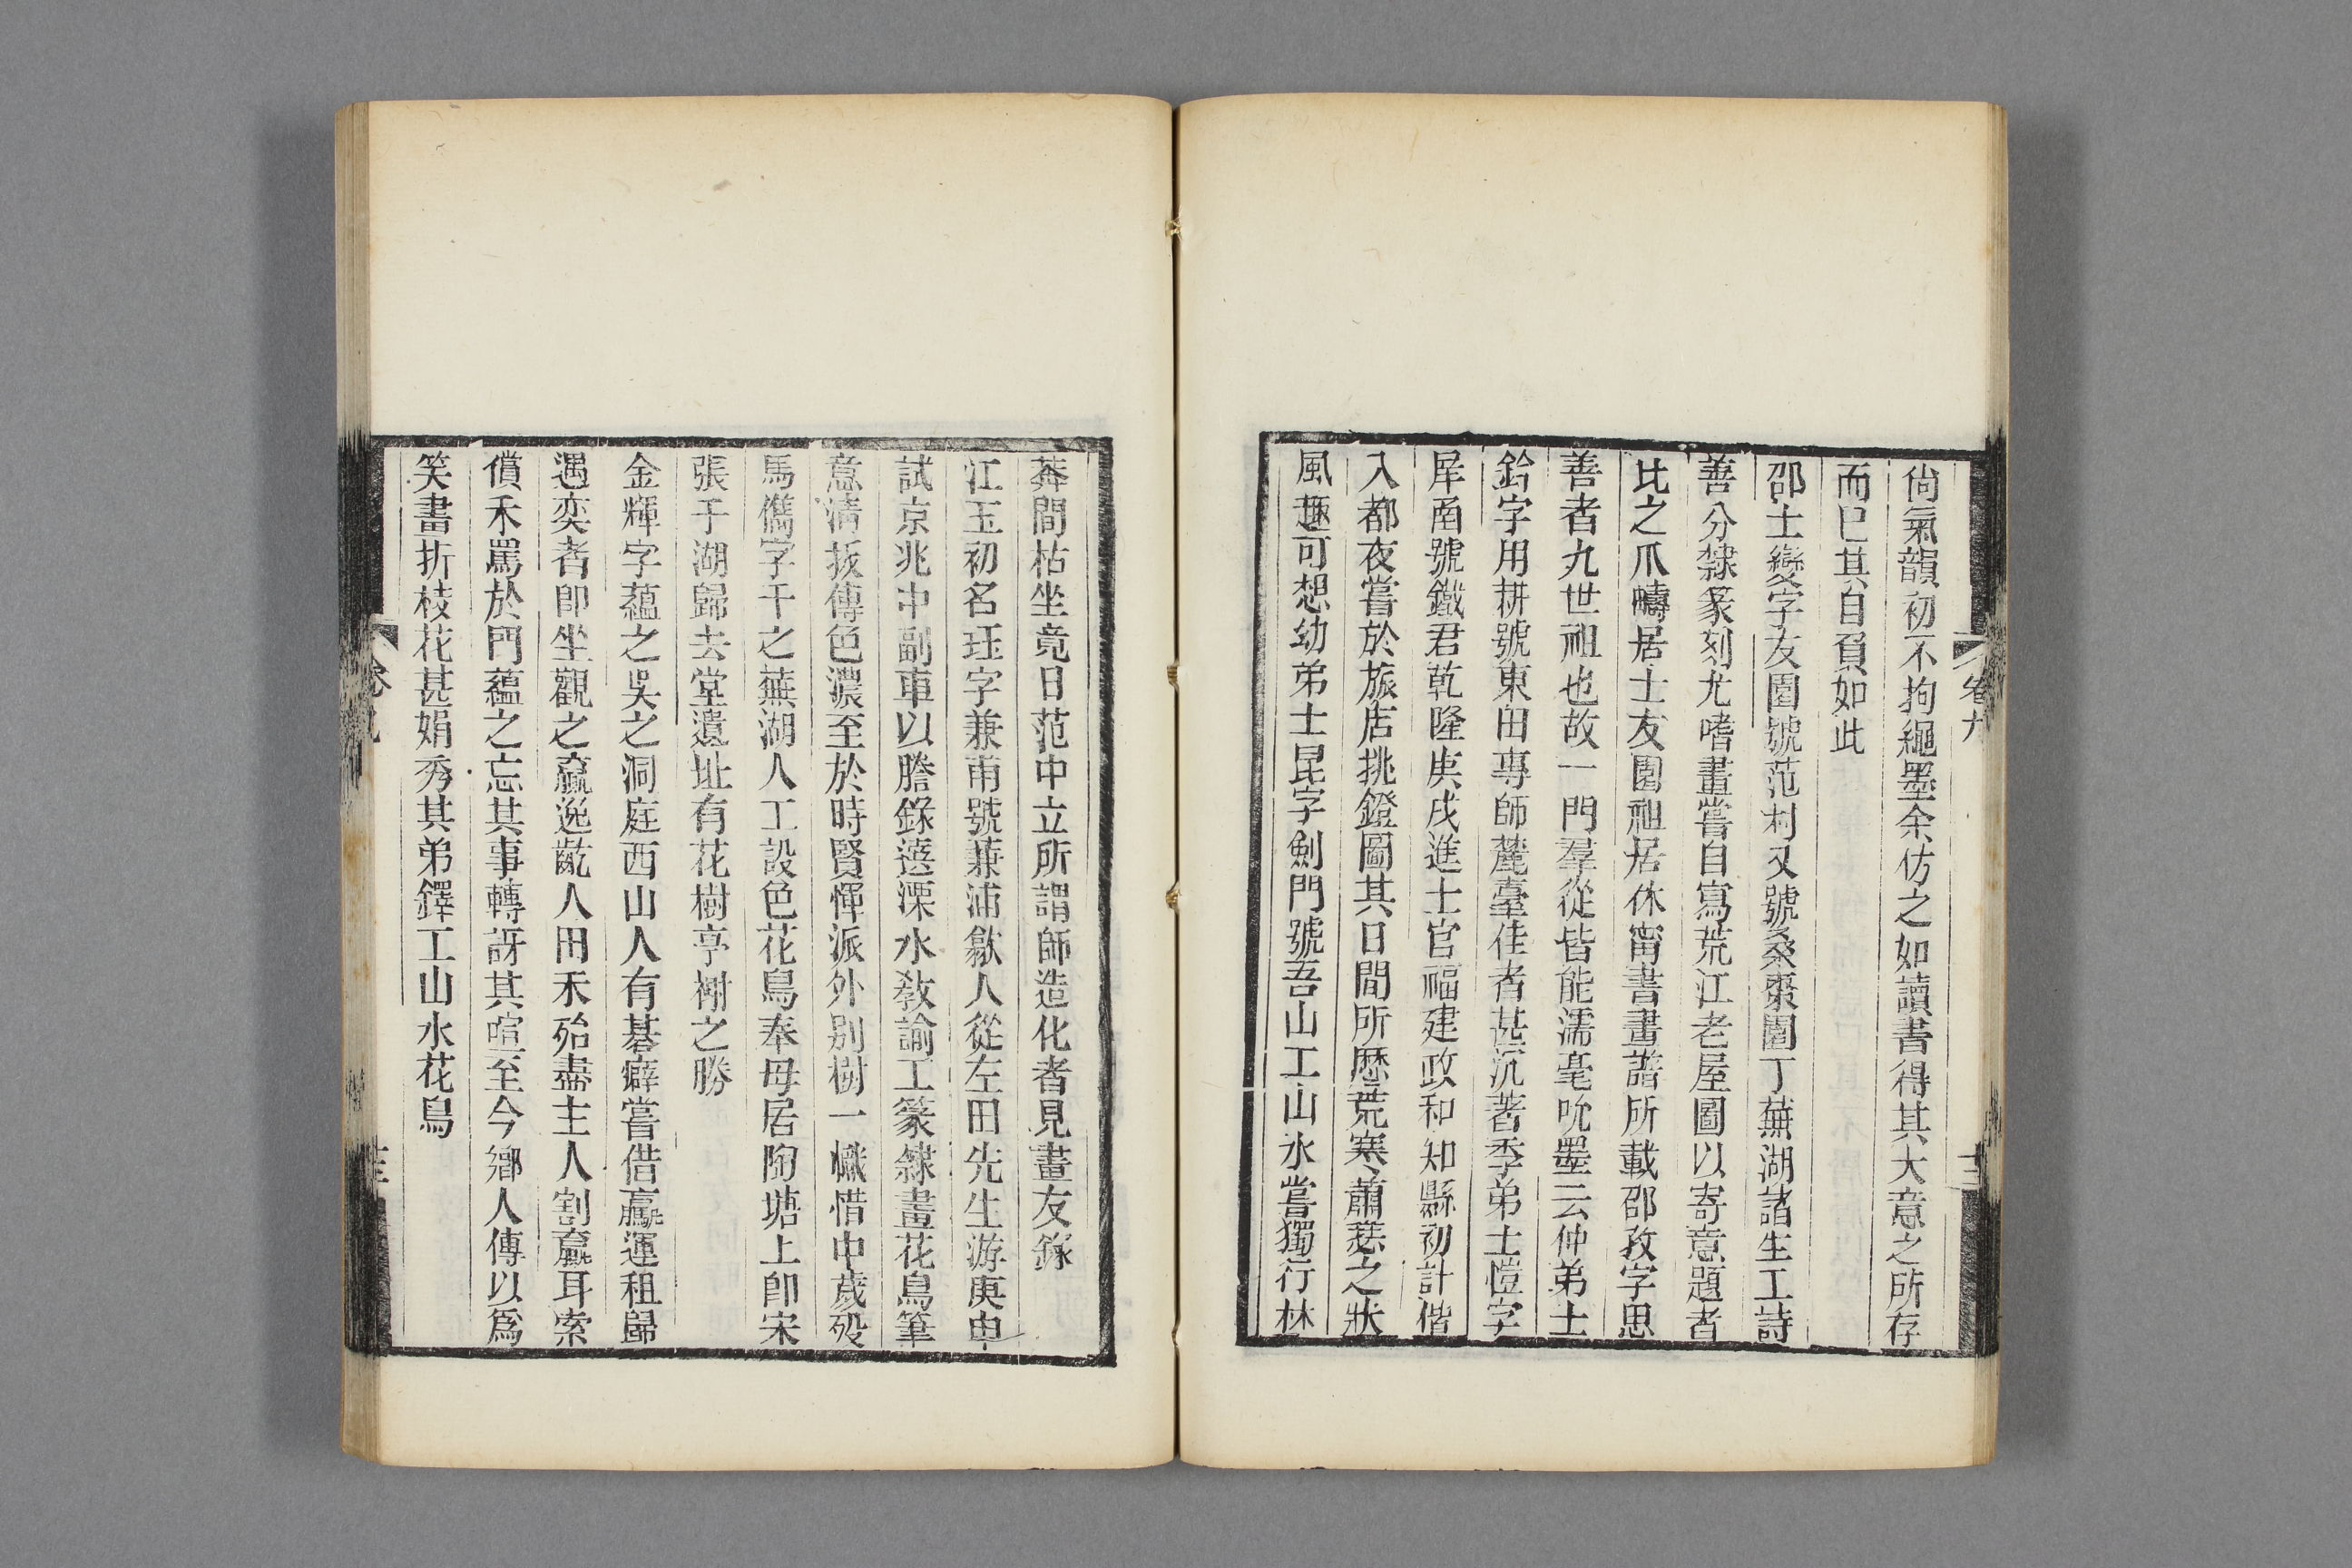 尙氣韻初不拘繩墨余仿之如讀書得其大意之所存
而已其自負如此
邵士燮字友園號范村又號桑棗園丁蕪湖諸生工詩
善分隸篆刻尤嗜畫嘗自寫荒江老屋圖以寄意題者
比之爪疇居士友園祖居休甯書畫譜所載邵孜字思
善者九世祖也故一門羣從皆能濡毫吮墨云仲弟士
鈐字用耕號東田專師麓臺佳者甚沉著季弟士愷字
犀函號鐵君乾隆庚戌進士官福建政和知縣初計偕
入都夜嘗於旅店挑鐙圖其日間所歷荒寒蕭瑟之狀
風趣可想幼弟士昆字劍門號吾山工山水嘗獨行林
莽間枯坐竟日范中立所謂師造化者見畫友錄
江玉初名珏字兼甫號蒹浦歙人從左田先生游庚申
試京兆中副車以謄錄選溧水敎諭工篆隸畫花鳥筆
意清拔傅色濃至於時賢惲派外别樹一幟惜中歲歿
馬儁字干之蕪湖人工設色花鳥奉母居陶塘上卽宋
張于湖歸去堂遺址有花樹亭榭之勝
金輝字蘊之吳之洞庭西山人有碁癖嘗借驘運租歸
遇奕者卽坐觀之驘逸齕人田禾殆盡主人割驘耳索
償禾罵於門蘊之忘其事轉訝其喧至今鄉人傳以爲
笑畫折枝花甚娟秀其弟鐸工山水花鳥
卷九
十三